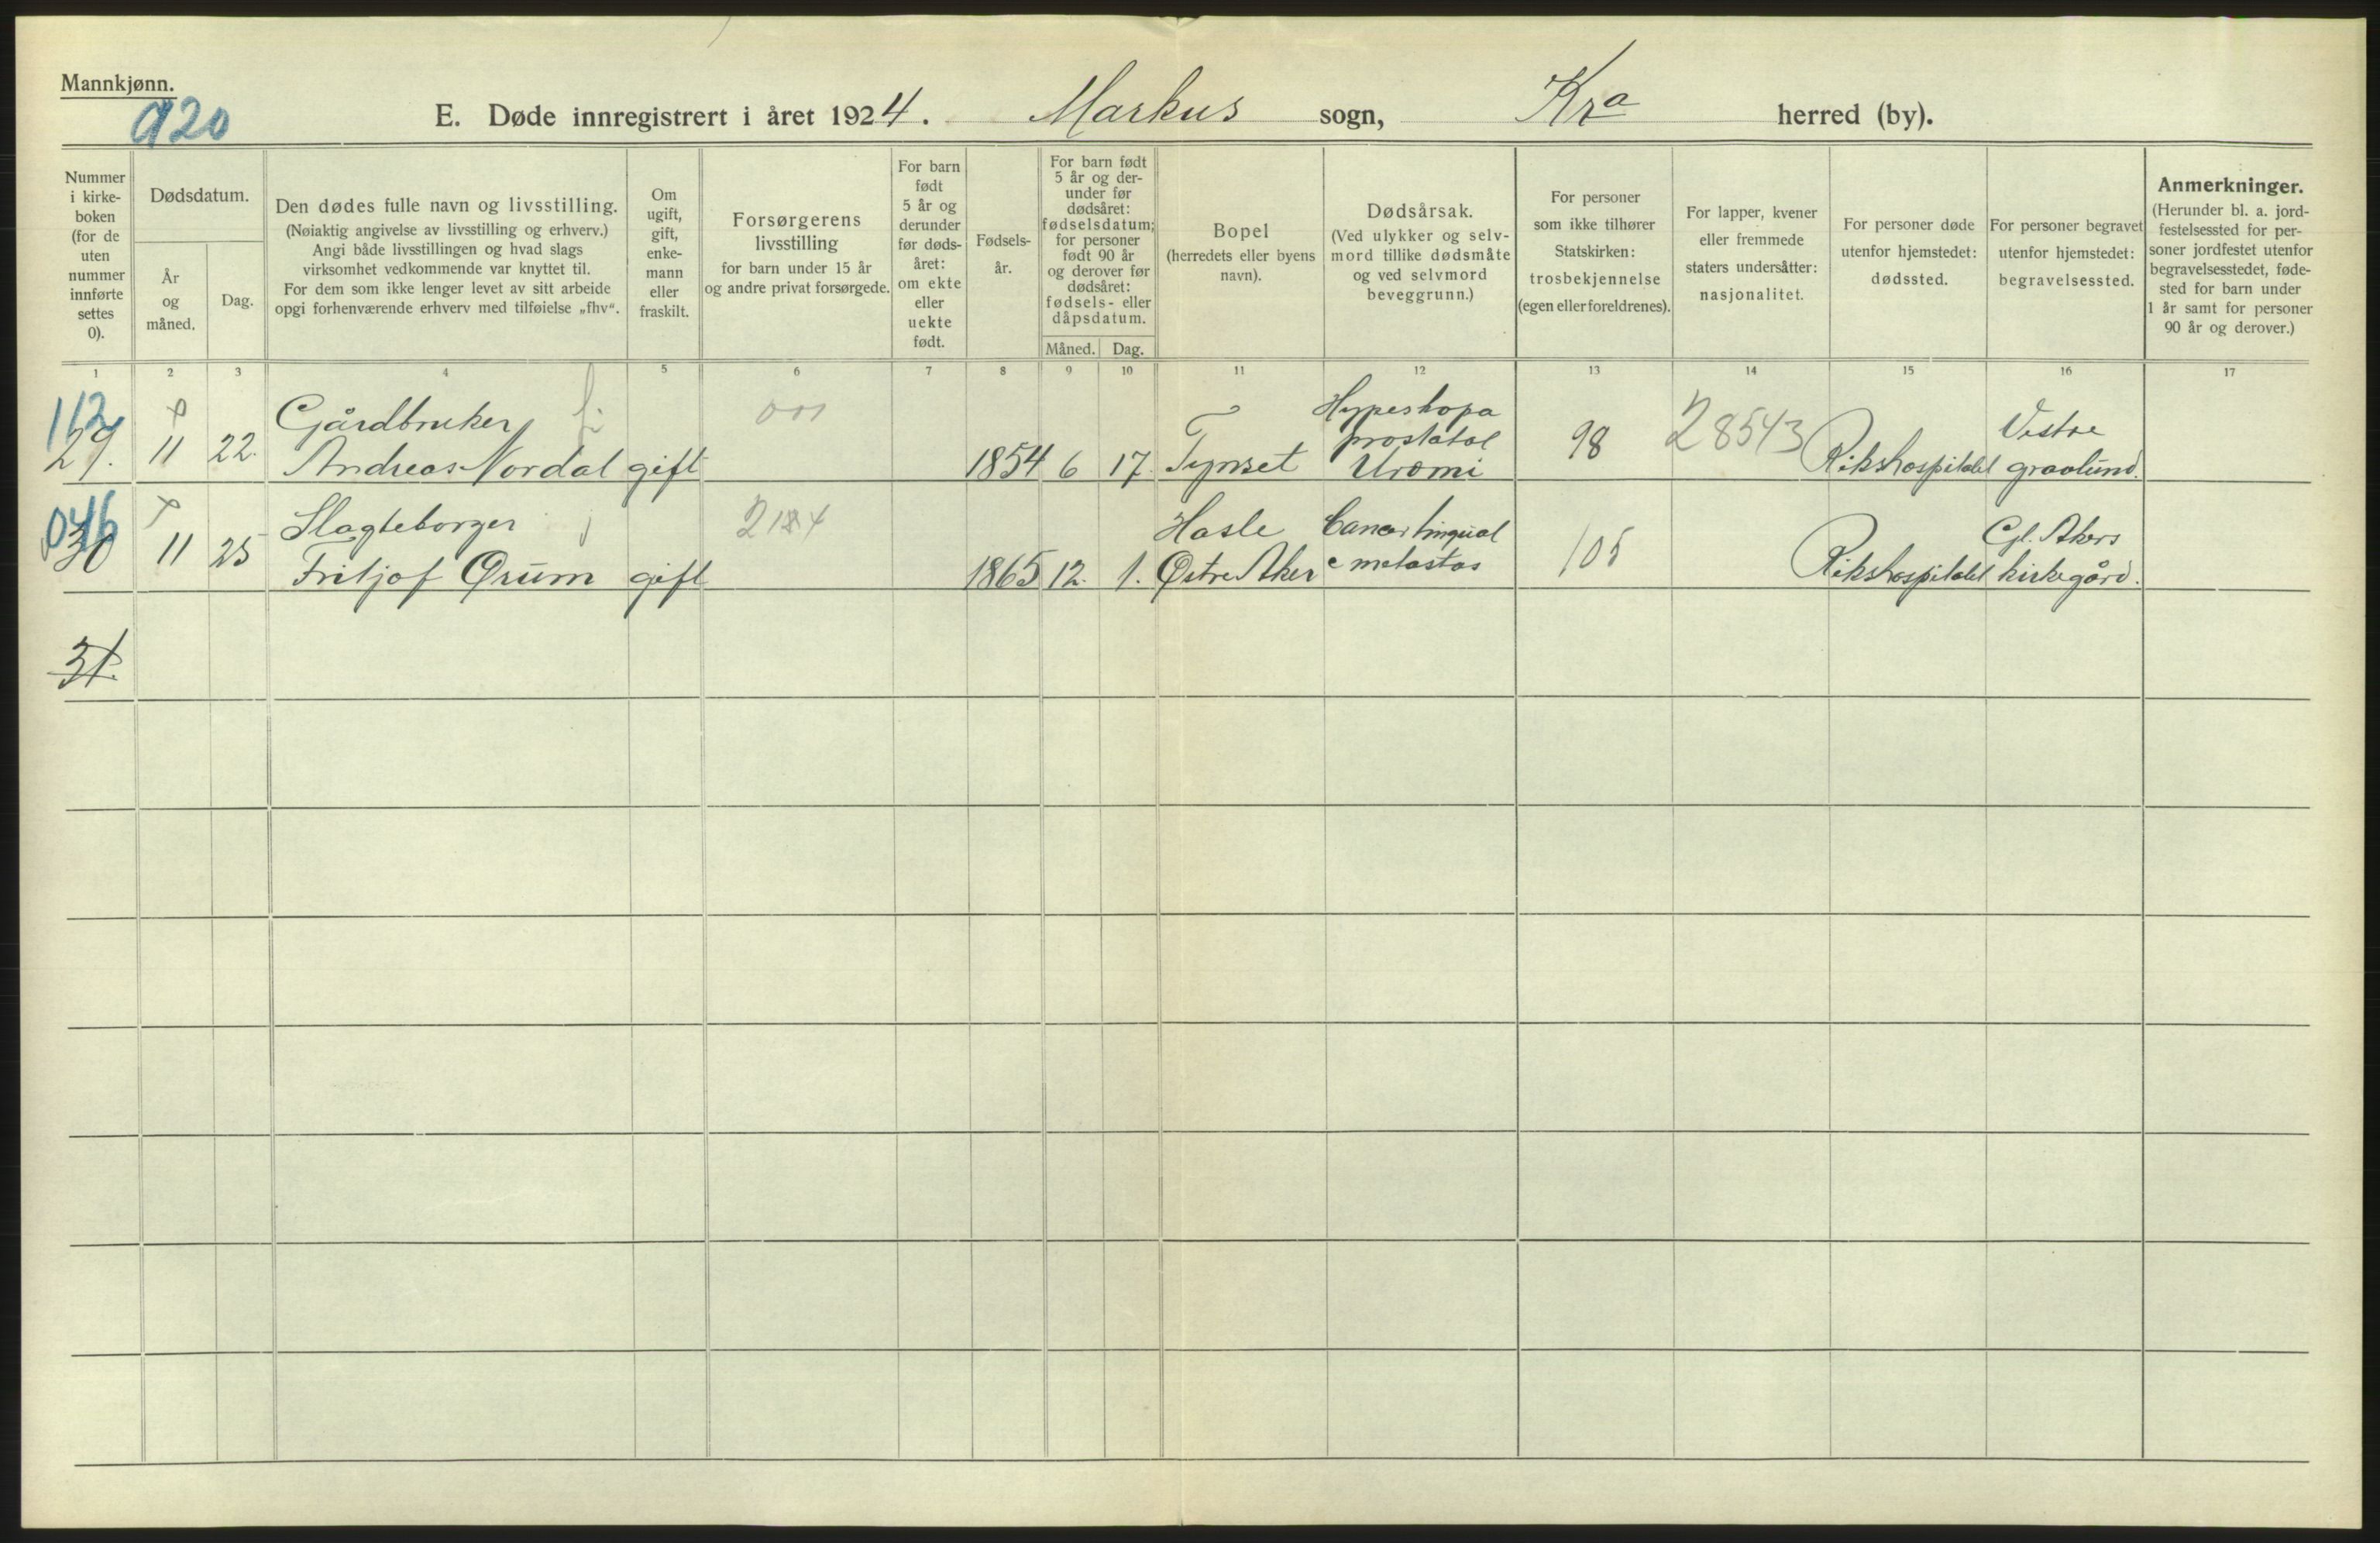 Mannkjønn.
920
E. Døde innregistrert i året 1924. Markus sogn, Kra herred (by).
Nummer
i kirke-
boken
(for de
uten
nummer
innførte
settes
0).
Dødsdatum.
År
og
måned.
Dag.
Den dødes fulle navn og livsstilling.
(Nøiaktig angivelse av livsstilling og erhverv.)
Angi både livsstillingen og hvad slags
virksomhet vedkommende var knyttet til.
For dem som ikke lenger levet av sitt arbeide
opgi forhenværende erhverv med tilføielse „fhv“.
Om
ugift,
gift,
enke-
mann
eller
fraskilt.
Forsørgerens
livsstilling
for barn under 15 år
og andre privat forsørgede.
For barn
født
5 år og
derunder
før døds-
året:
om ekte
eller
uekte
født.
Fødsels-
år.
For barn født
5 år og der-
under før
dødsåret:
fødselsdatum;
for personer
født 90 år
og derover før
dødsåret:
fødsels- eller
dåpsdatum.
Måned. Dag.
Bopel
(herredets eller byens
navn).
Dødsårsak.
(Ved ulykker og selv-
mord tillike dødsmåte
og ved selvmord
beveggrunn.)
For personer
som ikke tilhører
Statskirken:
trosbekjennelse
(egen eller foreldrenes).
For lapper, kvener
eller fremmede
staters undersåtter:
nasjonalitet.
For personer døde
utenfor hjemstedet:
dødssted.
For personer begravet
utenfor hjemstedet:
begravelsessted.
Anmerkninger.
(Herunder bl. a. jord-
festelsessted for per-
soner jordfestet utenfor
begravelsesstedet, føde-
sted for barn under
1 år samt for personer
90 år og derover.)
1 2 3 4 5 6 7 8 9 10 11 12 13 14 15 16 17
112
29. 11 22.
Gårdbruker
Andreas Nordal gift
1854 6 17.
Tynset
Hypeshopa
prostatal
Uromi
98
28543
Rikshospitalet
Vestre
gravlund.
046
30 11 25
Slagteborger
Fritjof Ørum gift
2184
1865 12. 1.
Hasle
Østre Aker
Cancer lingual
c metastas
105
Rikshospitalet
Gl. Akers
kirkegård.
31.